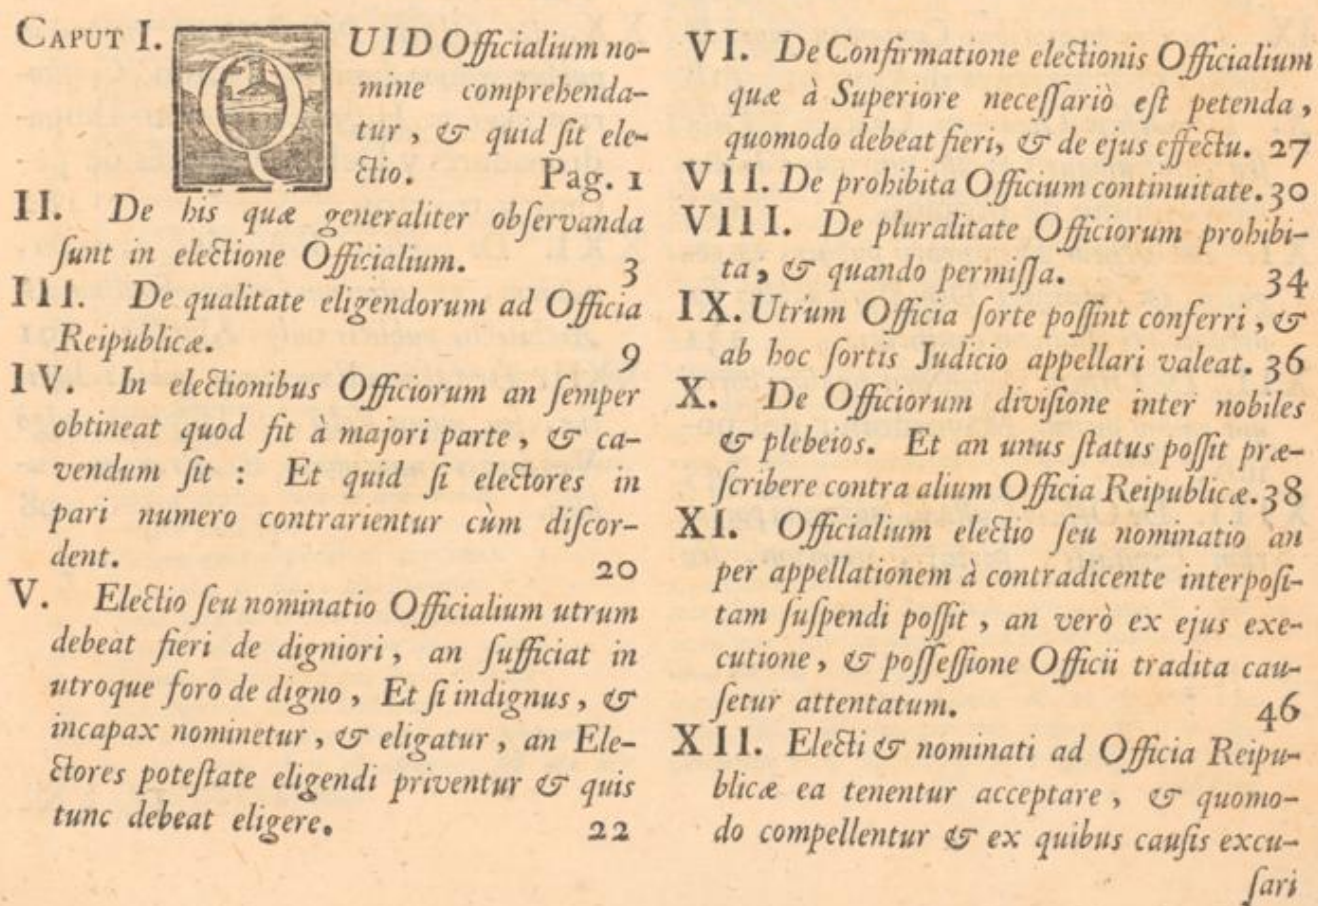 CAPUT I. QUID Officialium no-
mine comprehenda-
tur, & quid sit ele-
ctio. Pag. 1
II. De his quæ generaliter observanda
sunt in electione Officialium. 3
III. De qualitate eligendorum ad Officia
Reipublicæ. 9
IV. In electionibus Officiorum an semper
obtineat quod fit à majori parte, & ca-
vendum sit : Et quid si electores in
pari numero contrarientur cùm discor-
dent. 20
V. Electio seu nominatio Officialium utrum
debeat fieri de digniori, an sufficiat in
utroque foro de digno, Et si indignus, &
incapax nominetur, & eligatur, an Ele-
ctores potestate eligendi priventur & quis
tunc debeat eligere. 22
VI. De Confirmatione electionis Officialium
quæ à Superiore necessariò est petenda,
quomodo debeat fieri, & de ejus effectu. 27
VII. De prohibita Officium continuitate. 30
VIII. De pluralitate Officiorum prohibi-
ta, & quando permissa. 34
IX. Utrum Officia sorte possint conferri, &
ab hoc sortis Judicio appellari valeat. 36
X. De Officiorum divisione inter nobiles
& plebeios. Et an unus status possit præ-
scribere contra alium Officia Reipublicæ. 38
XI. Officialium electio seu nominatio an
per appellationem à contradicente interposi-
tam suspendi possit, an verò ex ejus exe-
cutione, & possessione Officii tradita cau-
setur attentatum. 46
XII. Electi & nominati ad Officia Reipu-
blicæ ea tenentur acceptare, & quomo-
do compellentur & ex quibus causis excu-
sari